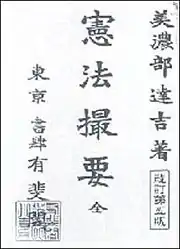 美濃部達吉著
改訂第五版
憲法撮要
全
東京 書肆 有斐閣